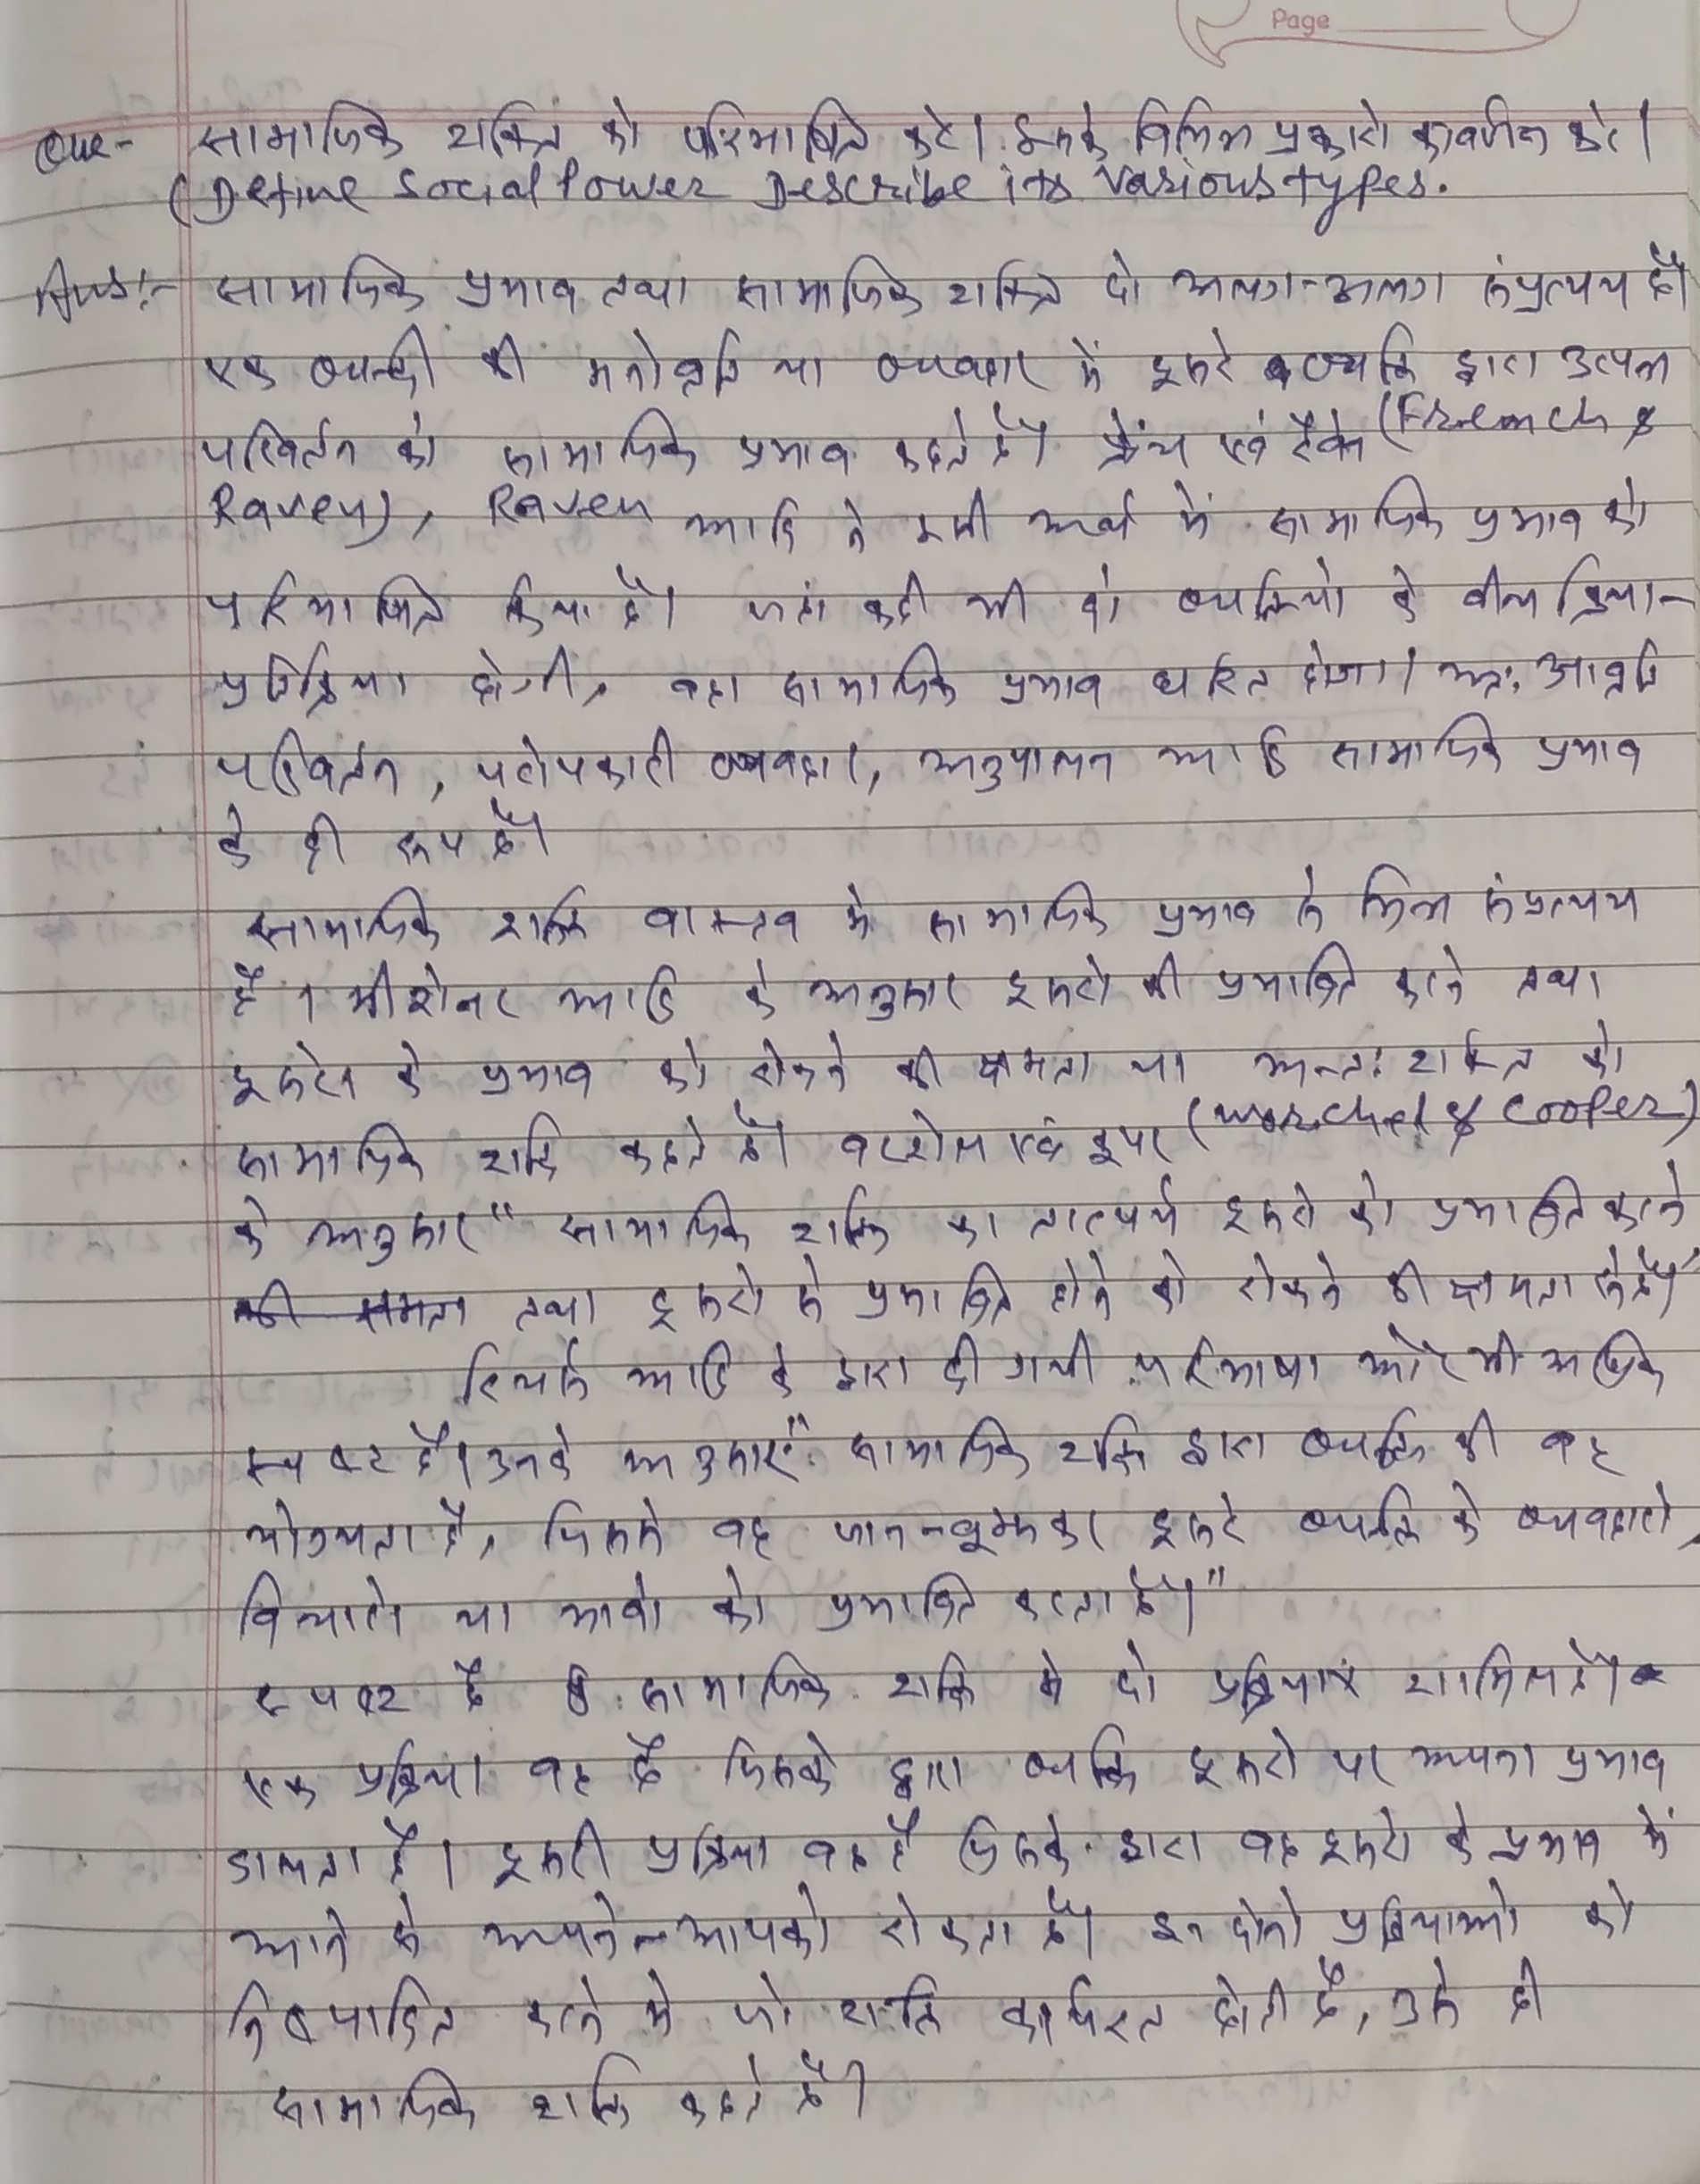 Page
Que- सामाजिक शक्ति को परिभाषित करे। इसके विभिन्न प्रकारो का वर्णन करे।
(Define Social Power Describe its various types.
Ans:- सामाजिक प्रभाव तथा सामाजिक शक्ति दो अलग-अलग संप्रत्यय है।
एक व्यक्ती की मनोवृति या व्यवहार में दूसरे व्यक्ति द्वारा उत्पन्न
परिवर्तन को सामाजिक प्रभाव कहते है। फ्रेंच एवं रैवेन (French &
Raven), Raven आदि ने इसी अर्थ में सामाजिक प्रभाव को
परिभाषित किया है। जहां कही भी दो व्यक्तियो के बीच क्रिया-
प्रतिक्रिया होगी, वहा सामाजिक प्रभाव घटित होगा। अतः आवृति
परिवर्तन, परोपकारी व्यवहार, अनुपालन आदि सामाजिक प्रभाव
के ही रूप है।
सामाजिक शक्ति वास्तव मे सामाजिक प्रभाव से भिन्न संप्रत्यय
है। मीशेनर आदि के अनुसार दूसरो की प्रभावित करने तथा
दूसरो के प्रभाव को रोकने की क्षमता या अन्तः शक्ति को
सामाजिक शक्ति कहते है। वरशेल एवं कूपर (Worchel & Cooper)
के अनुसार" सामाजिक शक्ति का तात्पर्य दूसरो को प्रभावित करने
की क्षमता तथा दूसरो से प्रभावित होने को रोकने की क्षमता से है।"
रिचर्ड आदि के द्वारा दी गयी परिभाषा और भी अधिक
स्पष्ट है। उनके अनुसार" सामाजिक शक्ति द्वारा व्यक्ति की वह
योग्यता है, जिससे वह जान-बूझकर दूसरे व्यक्ति के व्यवहारो,
विचारो या भावो को प्रभावित करता है।"
स्पष्ट है कि सामाजिक शक्ति मे दो प्रक्रियाएं शामिल है।
एक प्रक्रिया वह है जिसके द्वारा व्यक्ति दूसरो पर अपना प्रभाव
डालता है। दूसरी प्रक्रिया वह है जिसके द्वारा वह दूसरो के प्रभाव में
आने से अपने-आपको रोकता है। इन दोनो प्रक्रियाओ को
निष्पादित करने मे जो शक्ति कार्यरत होती है, उसे ही
सामाजिक शक्ति कहते है।